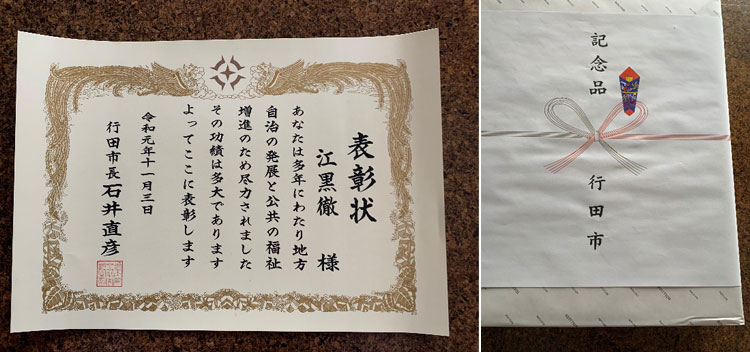 表彰状
江黒徹 様
あなたは多年にわたり地方
自治の発展と公共の福祉
増進のため尽力されました
その功績は多大であります
よってここに表彰します
令和元年十一月三日
行田市長 石井直彦
記念品
行田市